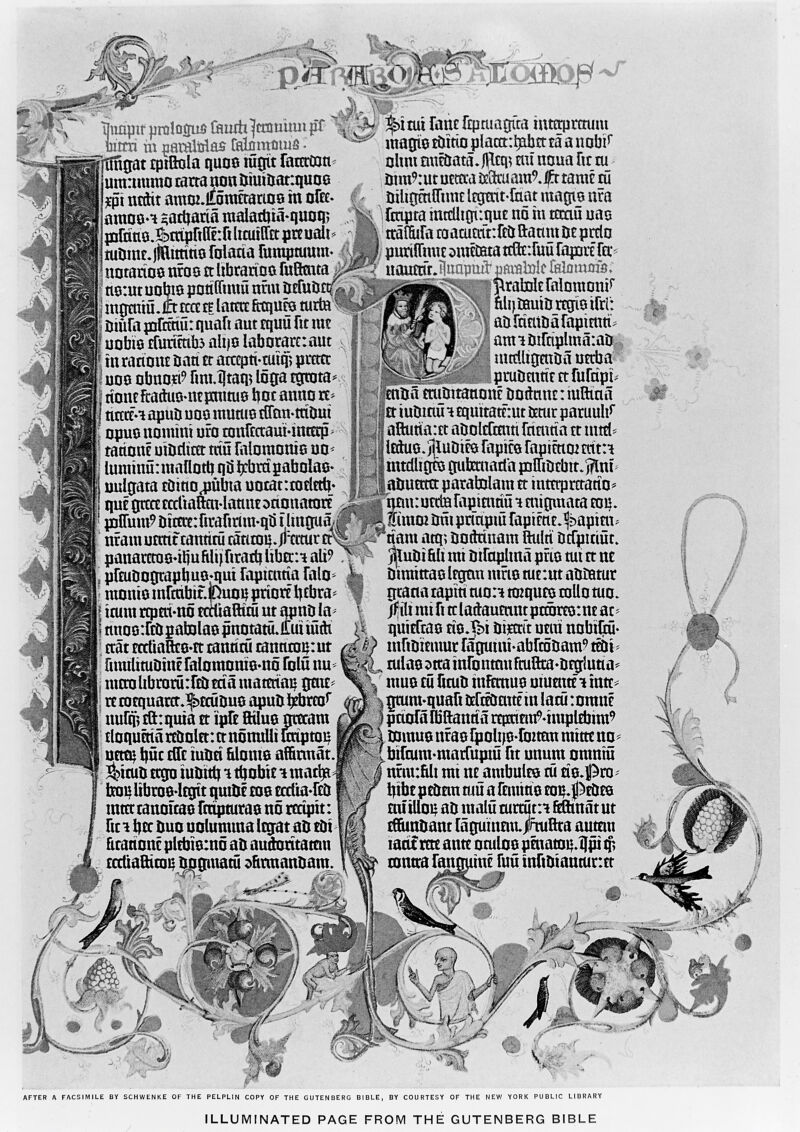 PARABOLE SALOMOIS
Incipit prologus sancti Jeronimi prs
biteri in parabolas salomonis.
Iungat epistola quos iungit sacerdoti-
um: immo carta non dividat: quos
xpi nectit amor. Cōmētarios in osee.
amos. ⁊ zachariā malachiā. quoq;
poscitis. Scripsissē: si licuisset pre vali-
tudine. Mittitis solacia sumptuum.
notarios nr̄os et librarios sustenta-
tis: ut vobis potissimū nr̄m desudet
ingeniū. Et ecce ex latere frequēs turba
diūsa poscētiū: quasi aut equū sit me
vobis esurientibȝ alijs laborare: aut
in racione dati et accepti. cuiq; preter
vos obnoxiꝰ sim. Itaq; lōga egrota-
tione fractus. ne penitus hoc anno re-
ticerē. ⁊ apud vos mutus essem. tridui
opus nomini vr̄o consecravi. interp̄-
tationē videlicet triū salomonis vo-
luminū: masloth qd̄ hebrei p̄abolas.
vulgata editio p̄verbia vocat: coeleth.
que grece ecclesiasten. latine ↄcionatorē
possumꝰ dicere: sirasirim. qd̄ ī linguā
nr̄am vertit̄ canticū cāticoꝝ. Fertur et
panaretos. ihū filij sirach liber: ⁊ aliꝰ
pseudographus. qui sapientia salo-
monis inscribit̄. Quoꝝ priorē hebra-
icum reperi. nō ecclesiasticū ut apud la-
tinos: sed p̄abolas p̄notatū. Cui iūcti
erāt ecclesiastes. et canticū canticoꝝ: ut
similitudinē salomonis. nō solū nu-
mero librorū: sed eciā materiaꝝ gene-
re coequaret. Secūdus apud hebreoꝰ
nusq̄ est: quia et ipse stilus grecam
eloquētiā redolet: et nōnulli scriptoꝝ
veteꝝ hūc esse iudei filonis affirmāt.
Sicud ergo iudith ⁊ thobie ⁊ macha-
beoꝝ libros. legit quidē eos ecclesia. sed
inter canoīcas scripturas nō recipit:
sic ⁊ hec duo volumina legat ad edi-
ficationē plebis: nō ad auctoritatem
ecclesiasticoꝝ dogmatū ↄfirmandam.
Si cui sane septuagīta interpretum
magis editio placet: habet eā a nobiꝰ
olim emēdatā. Neq; eni nova sic cu-
dimꝰ: ut vetera destruamꝰ. Et tamē cū
diligētissime legerit. sciat magis nr̄a
scripta intelligi: que nō in terciū vas
trāsfusa coacuerīt: sed statim de prelo
purissime ↄmēdata teste: suū saporē ser-
vaverīt. Incipiunt parabole salomonis.
Parabole salomonis
filij david regis isrl̄:
ad sciendā sapienti-
am ⁊ disciplinā: ad
intelligendā verba
prudentie et suscipi-
endā eruditationē doctrine: iusticiā
et iudiciū ⁊ equitatē: ut detur parvulis
astutia: et adolescenti scientia et intel-
lectus. Audiēs sapiēs sapientior erit: ⁊
intelligēs gubernacl̄a possidebit. Ani-
advertet parabolam et interpretatio-
nem: verba sapientiū ⁊ enigmata eoꝝ.
Timor dn̄i principiū sapiētie. Sapien-
tiam atq; doctrinam stulti despiciūt.
Audi fili mi disciplinā pr̄is tui et ne
dimittas legem mr̄is tue: ut addatur
gracia capiti tuo: ⁊ torques collo tuo.
Fili mi si te lactaverint pctōres: ne ac-
quiescas eis. Si dixerit veni nobiscū.
insidiemur sāguini. abscōdamꝰ tēdi-
culas ↄtra insontem frustra. deglutia-
mus eū sicud infernus viventē ⁊ inte-
grum. quasi descēdentē in lacū: omnē
p̄ciosā sb̄stantiā reperiemꝰ. implebimꝰ
domus nr̄as spolijs. sortem mitte no-
biscum. marsupiū sit unum omniū
nr̄m: fili mi ne ambules cū eis. Pro-
hibe pedem tuū a semitis eoꝝ. Pedes
eni illoꝝ ad malū currūt: ⁊ festināt ut
effundant sāguinem. Frustra autem
iacit̄ rete ante oculos pēnatoꝝ. Ipi q̄q;
contra sanguinē suū insidiantur: et
AFTER A FACSIMILE BY SCHWENKE OF THE PELPLIN COPY OF THE GUTENBERG BIBLE, BY COURTESY OF THE NEW YORK PUBLIC LIBRARY
ILLUMINATED PAGE FROM THE GUTENBERG BIBLE